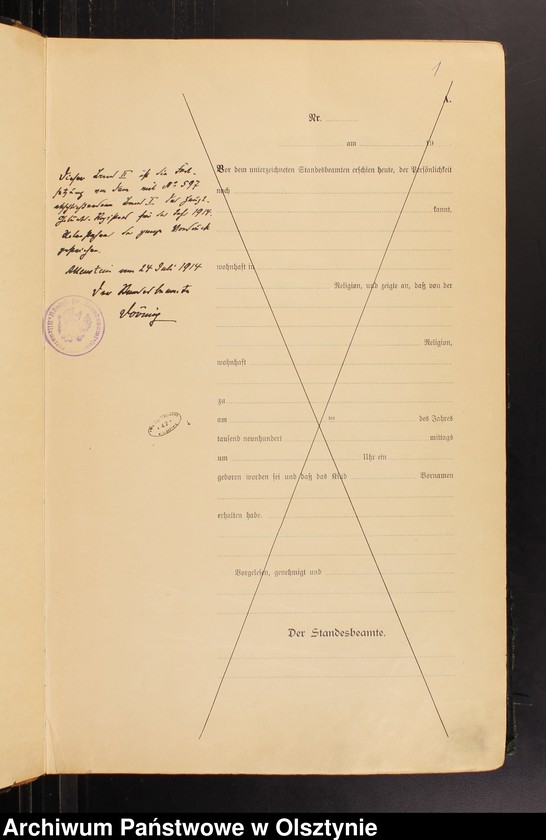 1
A.
Nr.
am 19
Dieser Band II ist die Fort-
setzung von dem mit No 597
abschließenden Band I. des Haupt-
Geburts-Registers für das Jahr 1914.
Vordruck
gestrichen.
Allenstein am 24 Juli 1914
Der Standesbeamte
Vor dem unterzeichneten Standesbeamten erschien heute, der Persönlichkeit
nach
kannt,
wohnhaft in
Religion, und zeigte an, daß von der
Religion,
wohnhaft
zu
am ten des Jahres
tausend neunhundert mittags
um Uhr ein
geboren worden sei und daß das Kind Vornamen
erhalten habe.
Vorgelesen, genehmigt und
Der Standesbeamte.
Archiwum Państwowe w Olsztynie